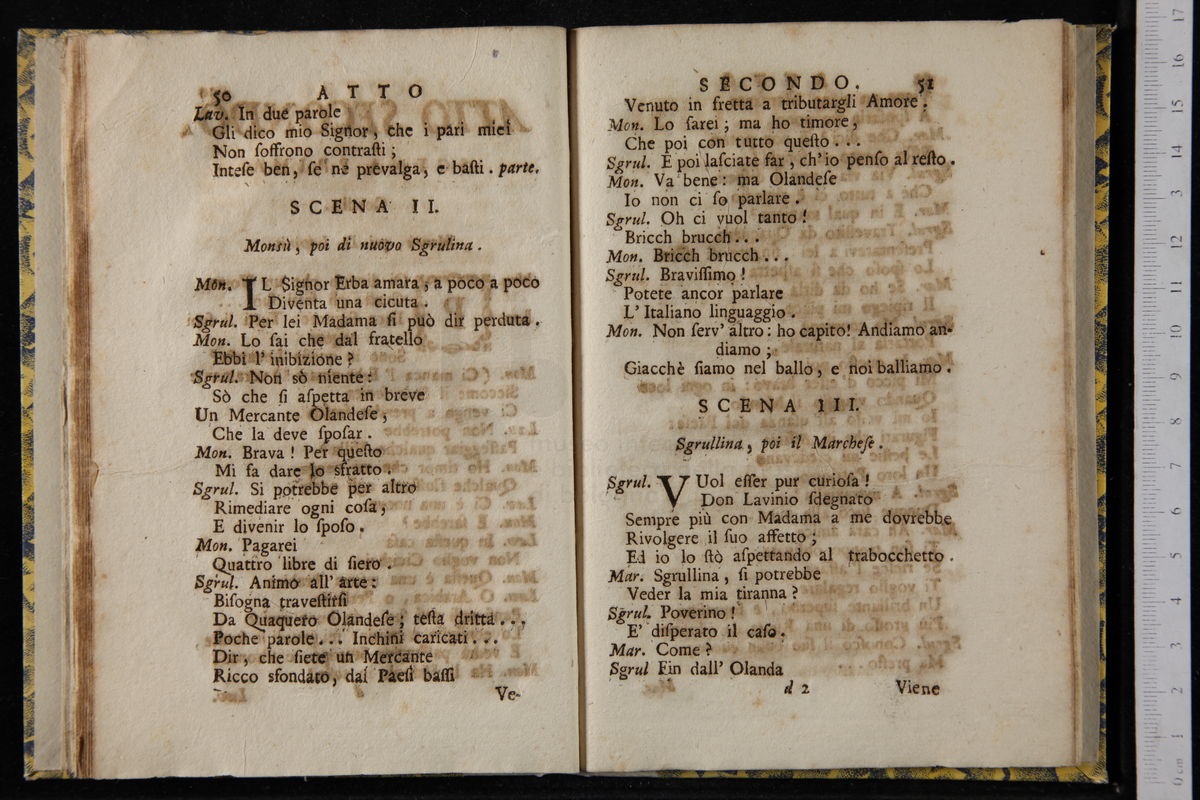 50 ATTO
Lav. In due parole
Gli dico mio Signor, che i pari miei
Non ſoffrono contraſti;
Inteſe ben, ſe ne prevalga, e baſti. parte.
SCENA II.
Monsù, poi di nuovo Sgrulina.
Mon. IL Signor Erba amara, a poco a poco
Diventa una cicuta.
Sgrul. Per lei Madama ſi può dir perduta.
Mon. Lo ſai che dal fratello
Ebbi l' inibizione?
Sgrul. Non sò niente:
Sò che ſi aſpetta in breve
Un Mercante Olandeſe,
Che la deve ſpoſar.
Mon. Brava! Per queſto
Mi fa dare lo sfratto.
Sgrul. Si potrebbe per altro
Rimediare ogni coſa,
E divenir lo ſpoſo.
Mon. Pagarei
Quattro libre di ſiero.
Sgrul. Animo all' arte:
Biſogna traveſtirſi
Da Quaquero Olandeſe; teſta dritta...
Poche parole... Inchini caricati...
Dir, che ſiete un Mercante
Ricco sfondato, dai Paeſi baſſi
Ve-
SECONDO. 51
Venuto in fretta a tributargli Amore.
Mon. Lo ſarei; ma ho timore,
Che poi con tutto queſto...
Sgrul. E poi laſciate far, ch'io penſo al reſto.
Mon. Va bene: ma Olandeſe
Io non ci ſo parlare.
Sgrul. Oh ci vuol tanto!
Bricch brucch...
Mon. Bricch brucch...
Sgrul. Braviſſimo!
Potete ancor parlare
L' Italiano linguaggio.
Mon. Non ſerv' altro: ho capito! Andiamo an-
diamo;
Giacchè ſiamo nel ballo, e noi balliamo.
SCENA III.
Sgrullina, poi il Marcheſe.
Sgrul. VUol eſſer pur curioſa!
Don Lavinio ſdegnato
Sempre più con Madama a me dovrebbe
Rivolgere il ſuo affetto;
Ed io lo ſtò aſpettando al trabocchetto.
Mar. Sgrullina, ſi potrebbe
Veder la mia tiranna?
Sgrul. Poverino!
E' diſperato il caſo.
Mar. Come?
Sgrul Fin dall' Olanda
d 2 Viene